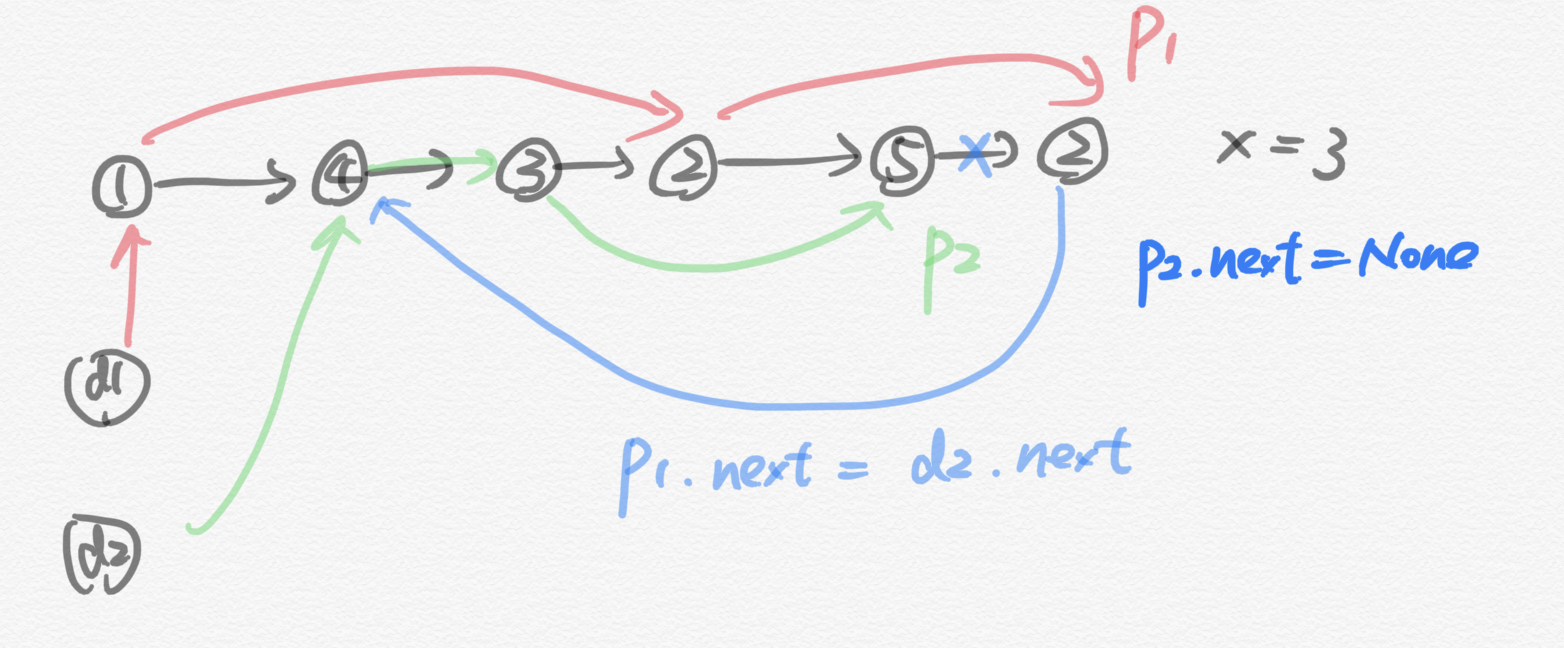 P1
1 4 3 2 5 x 2 x = 3
p2
p2.next = None
d1
p1.next = d2.next
d2